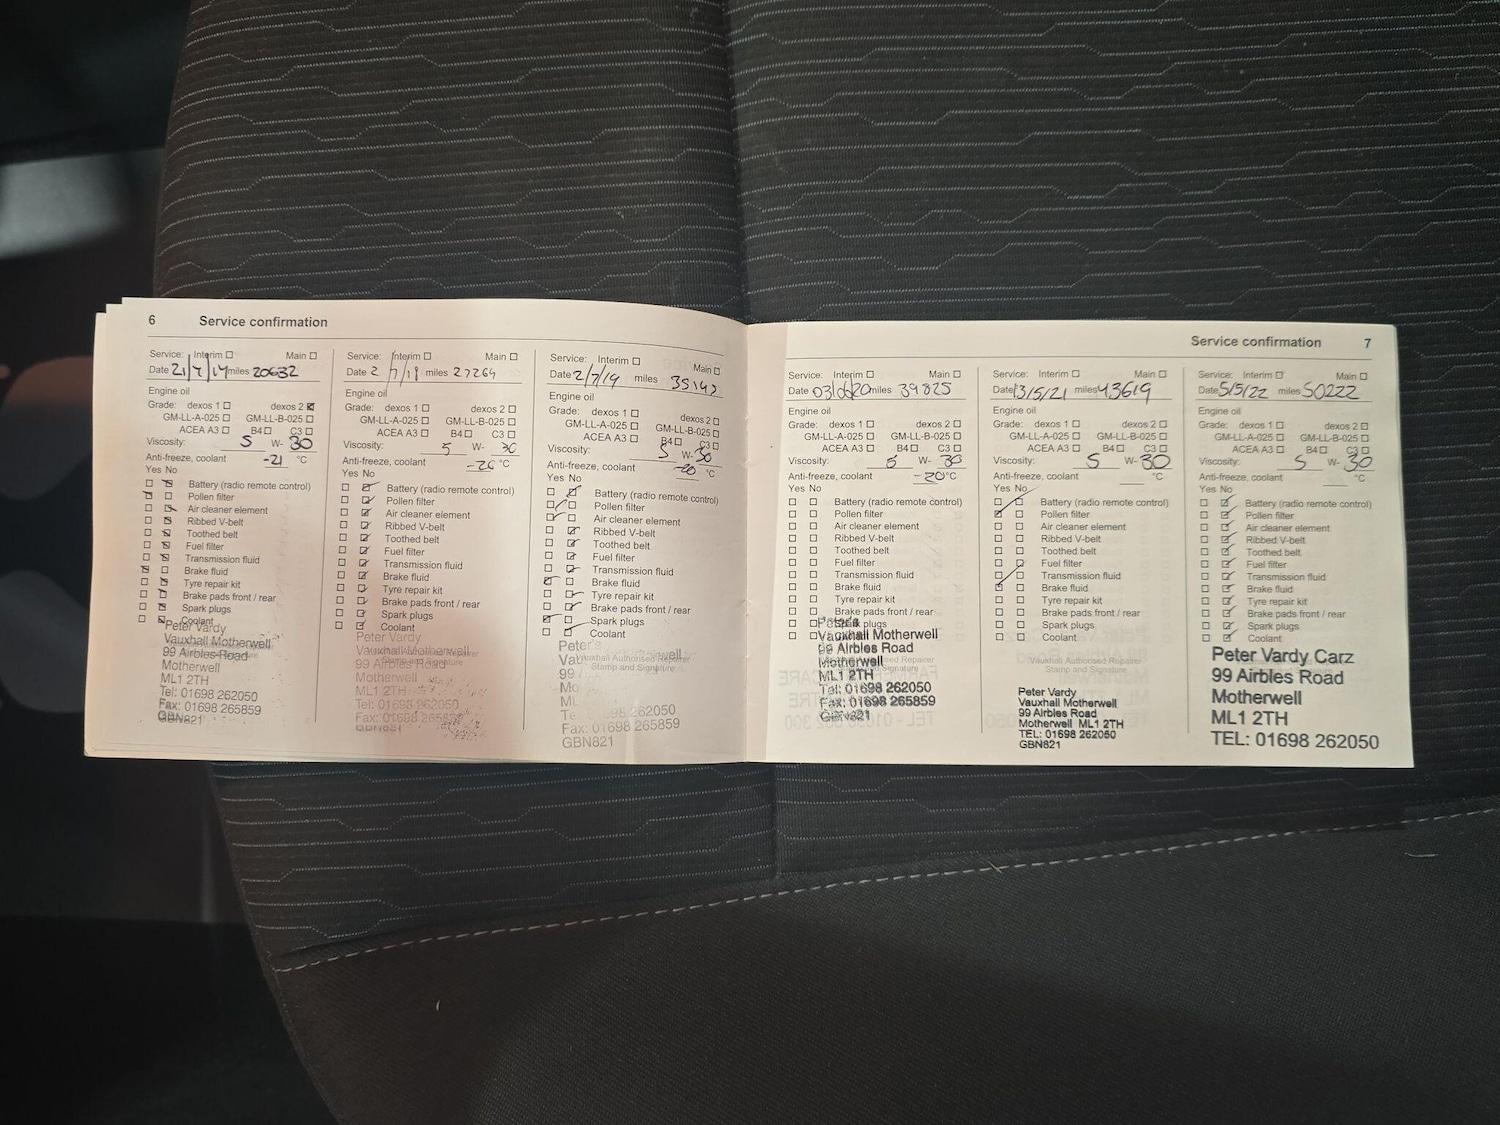 6 Service confirmation
Service: Interim ☐ Main ☐
Date 21/7/17 miles 20632
Engine oil
Grade: dexos 1 ☐ dexos 2 ☒
GM-LL-A-025 ☐ GM-LL-B-025 ☐
ACEA A3 ☐ B4 ☐ C3 ☐
Viscosity: 5 W- 30
Anti-freeze, coolant -21 °C
Yes No
Battery (radio remote control)
Pollen filter
Air cleaner element
Ribbed V-belt
Toothed belt
Fuel filter
Transmission fluid
Brake fluid
Tyre repair kit
Brake pads front / rear
Spark plugs
Coolant
Peter Vardy
Vauxhall Motherwell
99 Airbles Road
Motherwell
ML1 2TH
Tel: 01698 262050
Fax: 01698 265859
GBN821
Service: Interim ☐ Main ☐
Date 2/7/18 miles 27264
Engine oil
Grade: dexos 1 ☐ dexos 2 ☐
GM-LL-A-025 ☐ GM-LL-B-025 ☐
ACEA A3 ☐ B4 ☐ C3 ☐
Viscosity: 5 W- 30
Anti-freeze, coolant -20 °C
Yes No
Battery (radio remote control)
Pollen filter
Air cleaner element
Ribbed V-belt
Toothed belt
Fuel filter
Transmission fluid
Brake fluid
Tyre repair kit
Brake pads front / rear
Spark plugs
Coolant
Peter Vardy
Vauxhall Motherwell
99 Airbles Road
Motherwell
ML1 2TH
Tel: 01698 262050
Fax: 01698 265859
GBN821
Service: Interim ☐ Main ☐
Date 2/7/19 miles 35142
Engine oil
Grade: dexos 1 ☐ dexos 2 ☐
GM-LL-A-025 ☐ GM-LL-B-025 ☐
ACEA A3 ☐ B4 ☐ C3 ☐
Viscosity: 5 W- 30
Anti-freeze, coolant -20 °C
Yes No
Battery (radio remote control)
Pollen filter
Air cleaner element
Ribbed V-belt
Toothed belt
Fuel filter
Transmission fluid
Brake fluid
Tyre repair kit
Brake pads front / rear
Spark plugs
Coolant
Peter
Vauxhall Authorised Repairer
Stamp and Signature
99
262050
Fax: 01698 265859
GBN821
Service confirmation 7
Service: Interim ☐ Main ☐
Date miles 39825
Engine oil
Grade: dexos 1 ☐ dexos 2 ☐
GM-LL-A-025 ☐ GM-LL-B-025 ☐
ACEA A3 ☐ B4 ☐ C3 ☐
Viscosity: 5 W- 30
Anti-freeze, coolant -20 °C
Yes No
Battery (radio remote control)
Pollen filter
Air cleaner element
Ribbed V-belt
Toothed belt
Fuel filter
Transmission fluid
Brake fluid
Tyre repair kit
Brake pads front / rear
Spark plugs
Vauxhall Motherwell
99 Airbles Road
Motherwell
ML1 2TH
Tel: 01698 262050
Fax: 01698 265859
GBN821
Service: Interim ☐ Main ☐
Date 13/5/21 miles 43619
Engine oil
Grade: dexos 1 ☐ dexos 2 ☐
GM-LL-A-025 ☐ GM-LL-B-025 ☐
ACEA A3 ☐ B4 ☐ C3 ☐
Viscosity: 5 W- 30
Anti-freeze, coolant °C
Yes No
Battery (radio remote control)
Pollen filter
Air cleaner element
Ribbed V-belt
Toothed belt
Fuel filter
Transmission fluid
Brake fluid
Tyre repair kit
Brake pads front / rear
Spark plugs
Coolant
Vauxhall Authorised Repairer
Stamp and Signature
Peter Vardy
Vauxhall Motherwell
99 Airbles Road
Motherwell ML1 2TH
TEL: 01698 262050
GBN821
Service: Interim ☐ Main ☐
Date 5/5/22 miles 50222
Engine oil
Grade: dexos 1 ☐ dexos 2 ☐
GM-LL-A-025 ☐ GM-LL-B-025 ☐
ACEA A3 ☐ B4 ☐ C3 ☐
Viscosity: 5 W- 30
Anti-freeze, coolant °C
Yes No
Battery (radio remote control)
Pollen filter
Air cleaner element
Ribbed V-belt
Toothed belt
Fuel filter
Transmission fluid
Brake fluid
Tyre repair kit
Brake pads front / rear
Spark plugs
Coolant
Peter Vardy Carz
99 Airbles Road
Motherwell
ML1 2TH
TEL: 01698 262050